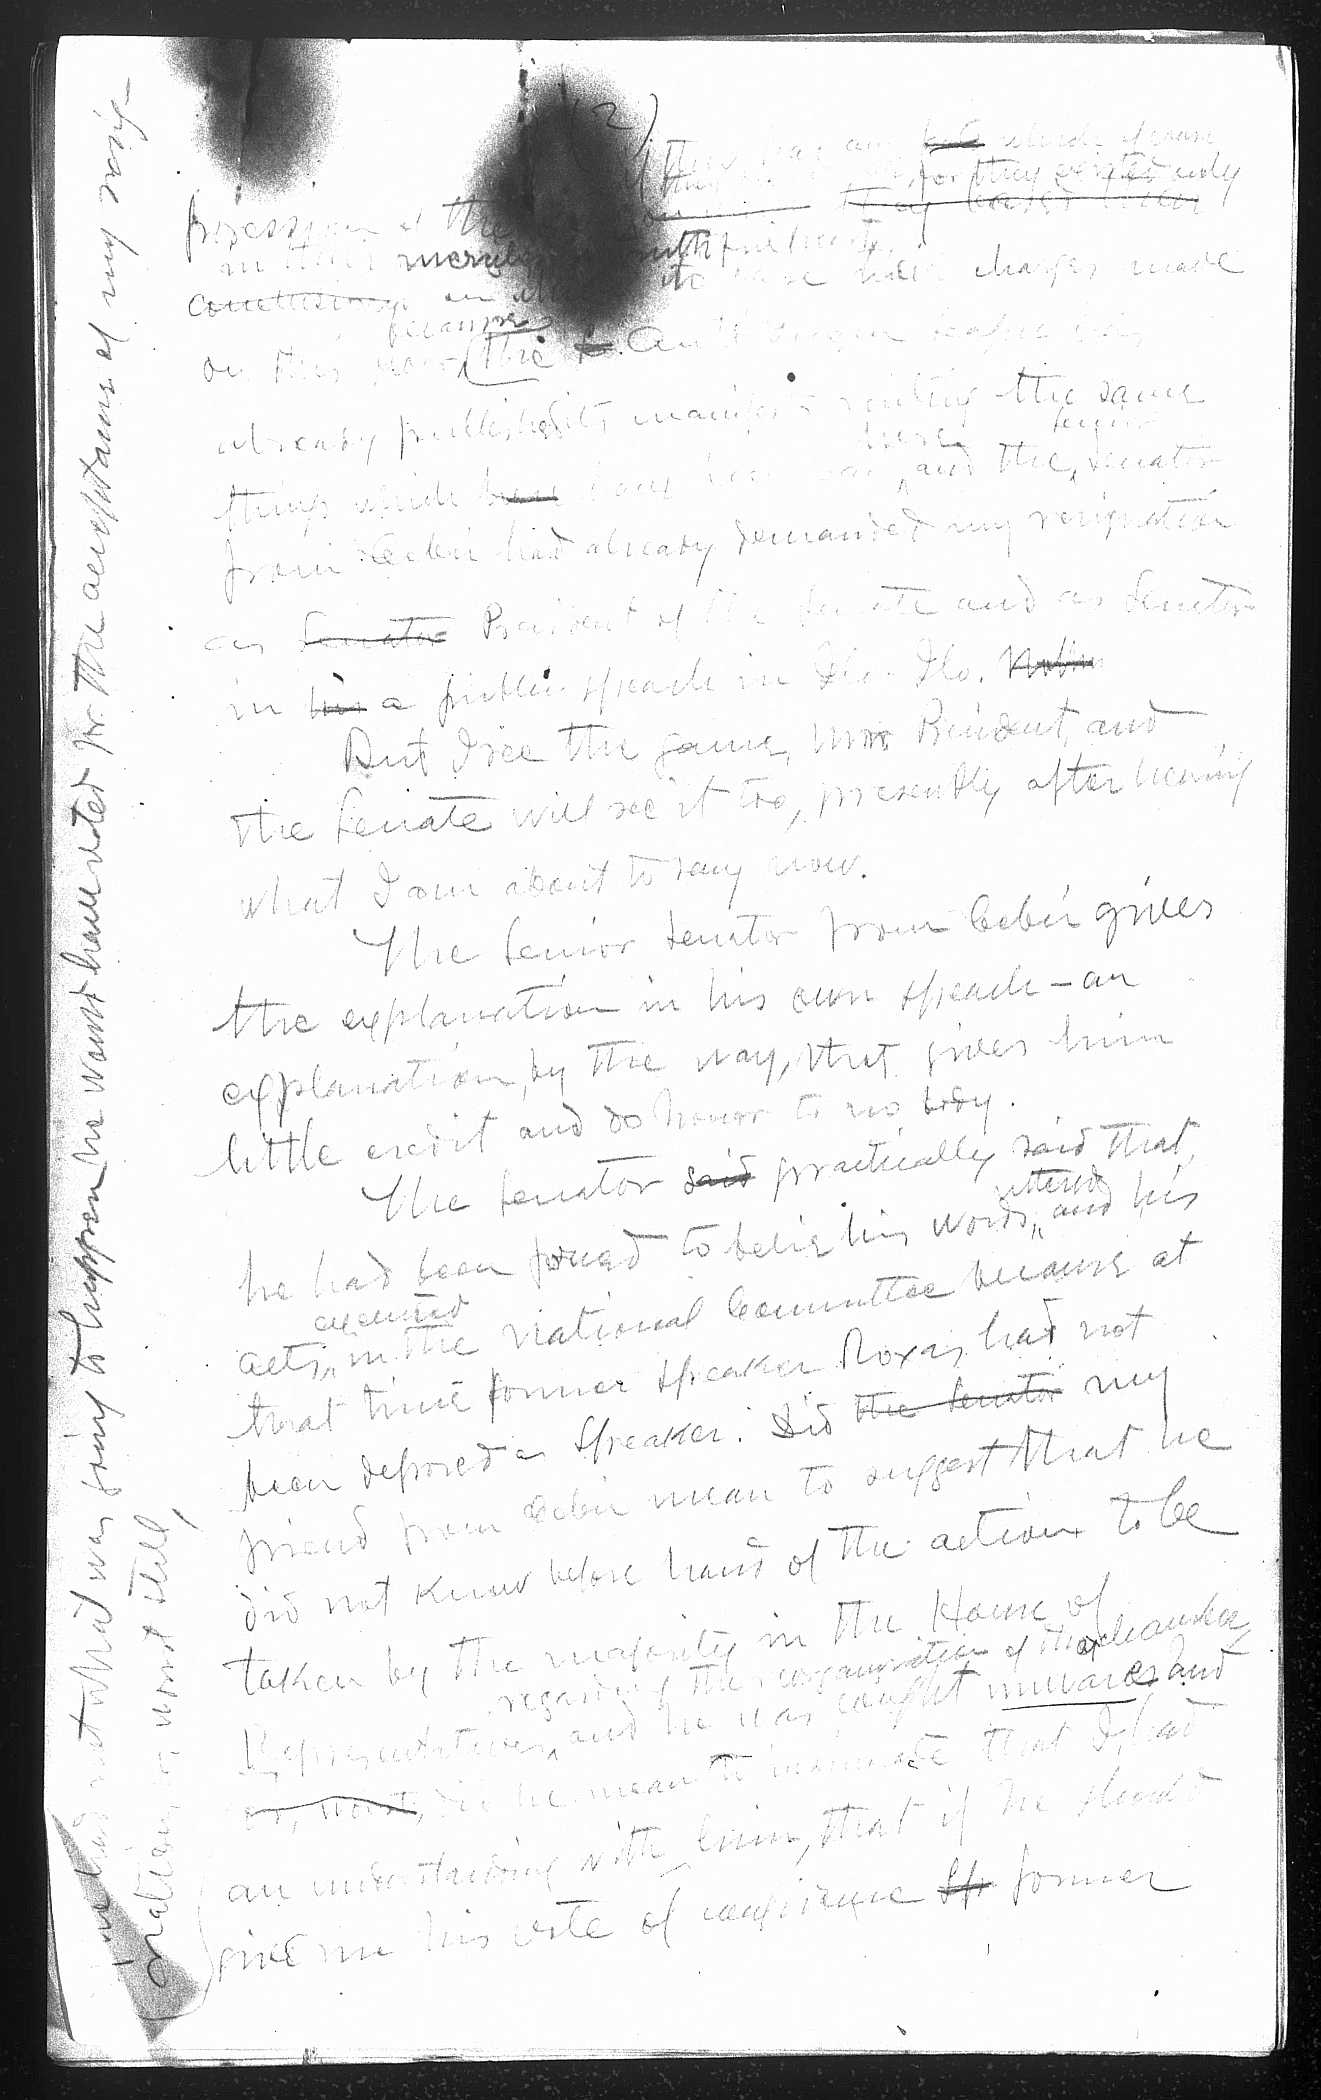 (2)
they had and which of course
for they existed only
possession of the they
in their
conclusions to have such charges made
because
on this floor, the Anti league had
already published its manifesto the same
here senior
things which have been said and the Senator
from Cebú had already demanded my resignation
as Senator President of the Senate and as Senator
in his a public speech in Ilo-Ilo.
But I see the game, Mr. President, and
the Senate will see it too, presently after hearing
what I am about to say now.
The Senior Senator from Cebú gives
the explanation in his own speech – an
explanation, by the way, that gives him
little credit and do honor to no body.
The Senator said practically said that,
uttered
he had been forced to belie his words, and his
executed
acts, in the National Committee because at
that time former Speaker Roxas had not
been deposed as Speaker. Did the Senator my
friend from Cebú mean to suggest that he
did not know before hand of the action to be
taken by the majority in the House of
regarding the reorganization of that chamber,
Representatives, and he was caught unwares? And
or, worst, did he mean to insinuate that I had
an understanding with him, that if he should
give me his vote of confidence Sp former
what was going to happen he would have voted for the acceptance of my resig-
nation or, worst still,